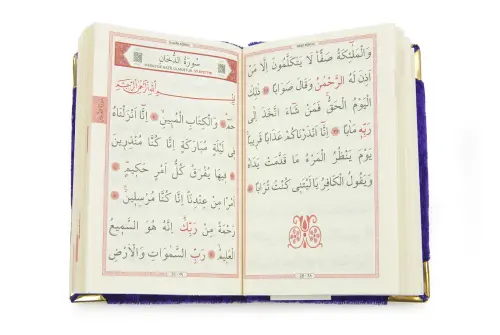 وَالْمَلٰٓئِكَةُ صَفًّا لَا يَتَكَلَّمُونَ اِلَّا مَنْ
اَذِنَ لَهُ الرَّحْمٰنُ وَقَالَ صَوَابًا ذٰلِكَ
الْيَوْمُ الْحَقُّ فَمَنْ شَٓاءَ اتَّخَذَ اِلٰى
رَبِّهِ مَاٰبًا اِنَّٓا اَنْذَرْنَاكُمْ عَذَابًا قَرِيبًا
يَوْمَ يَنْظُرُ الْمَرْءُ مَا قَدَّمَتْ يَدَاهُ
وَيَقُولُ الْكَافِرُ يَالَيْتَنِى كُنْتُ تُرَابًا
سُورَةُ الدُّخَانِ
بِسْمِ اللّٰهِ الرَّحْمٰنِ الرَّحِيمِ
حٰمٓ وَالْكِتَابِ الْمُبِينِ اِنَّٓا اَنْزَلْنَاهُ
فِى لَيْلَةٍ مُبَارَكَةٍ اِنَّا كُنَّا مُنْذِرِينَ
فِيهَا يُفْرَقُ كُلُّ اَمْرٍ حَكِيمٍ
اَمْرًا مِنْ عِنْدِنَا اِنَّا كُنَّا مُرْسِلِينَ
رَحْمَةً مِنْ رَبِّكَ اِنَّهُ هُوَ السَّمِيعُ
الْعَلِيمُ رَبِّ السَّمٰوَاتِ وَالْاَرْضِ